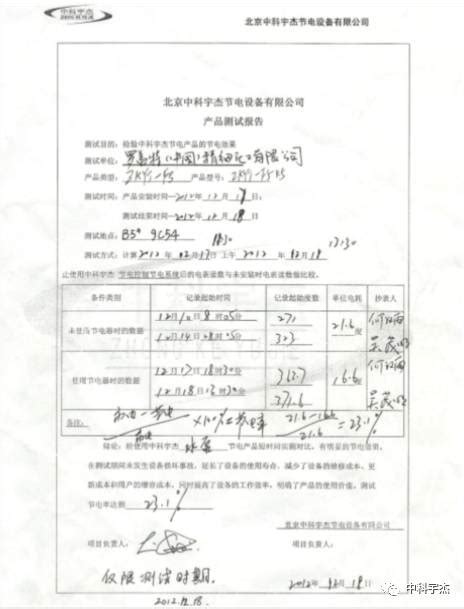 中科宇杰
北京中科宇杰节电设备有限公司
北京中科宇杰节电设备有限公司
产品测试报告
测试目的：检验中科宇杰节电产品的节电效果
测试单位：罗嘉特（中国）精细化工有限公司
产品类型：ZKYJ-FS 产品型号：
测试时间：产品安装时间—2012年12月17日；
测试结束时间—2012年12月18日
测试地点：B5# 9C54
18:30 13:30
测试方式：计算2012年12月17日上午 2012年12月18
让使用中科宇杰 节电控制节电系统后的电表读数与未安装时电表读数做比较。
条件类别 记录起始时间 记录起始度数 单位电耗 抄表人
未使用节电器时的数据 12月10日8时05分 271 21.6度
12月14日08时05分 323
使用节电器时的数据 12月17日18时30分 363.7 16.6度
12月18日13时30分 371.6
备注： ×100%=节电率 21.6-16.6/21.6=23.1%
结论：经使用中科宇杰 节电产品短时间实测对比，有明显的节电效果，
在测试期间未发生设备损坏事故，延长了设备的使用寿命，减少了设备的维修成本、更
新成本和用户的增容成本，同时提高了设备的工作效率，明确了产品的使用价值。测试
节电率达到 23.1%
北京中科宇杰节电设备有限公司
项目负责人： 项目负责人：
仅限测试时期。
2012.12.18. 2012年12月18日
中科宇杰